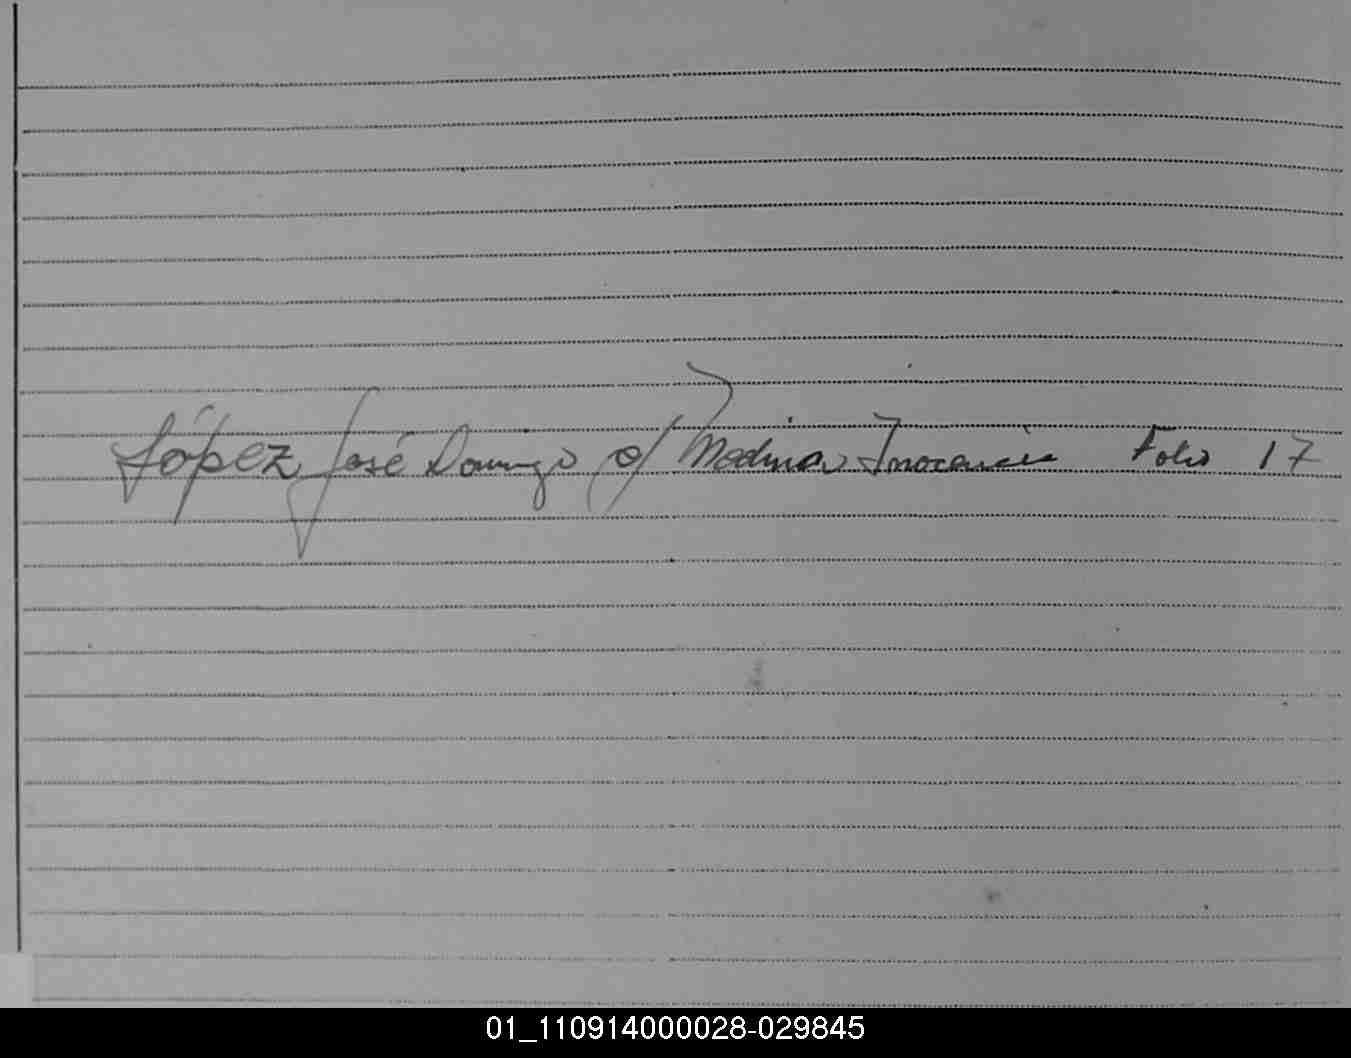 López José Domingo c/ Medina Inocencia Folio 17
01_110914000028-029845